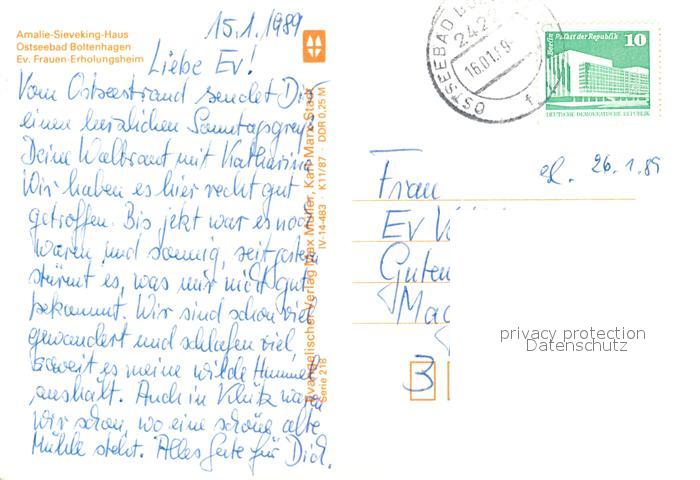 Amalie-Sieveking-Haus
Ostseebad Boltenhagen
Ev. Frauen-Erholungsheim
15.1.1989
Liebe Ev!
Vom Ostseestrand sendet Dir
einen herzlichen Sonntagsgruß
Deine Waltraut mit Katharina
Wir haben es hier recht gut
getroffen. Bis jetzt war es noch
warm und sonnig, seit gestern
stürmt es, was mir nicht gut
bekommt. Wir sind schon viel
gewandert und schlafen viel,
soweit es meine wilde Hummel
aushält. Auch in Klütz waren
wir schon, wo eine schöne alte
Mühle steht. Alles Gute für Dich.
Evangelischer Verlag Max Müller, Karl-Marx-Stadt
Serie 218 IV-14-483 K11/87 DDR 0,25 M
OSTSEEBAD
242
16.01.89
f
Berlin Palast der Republik 10
DEUTSCHE DEMOKRATISCHE REPUBLIK
el. 26.1.89
Frau
Ev
Guten
Mag
3
privacy protection
Datenschutz